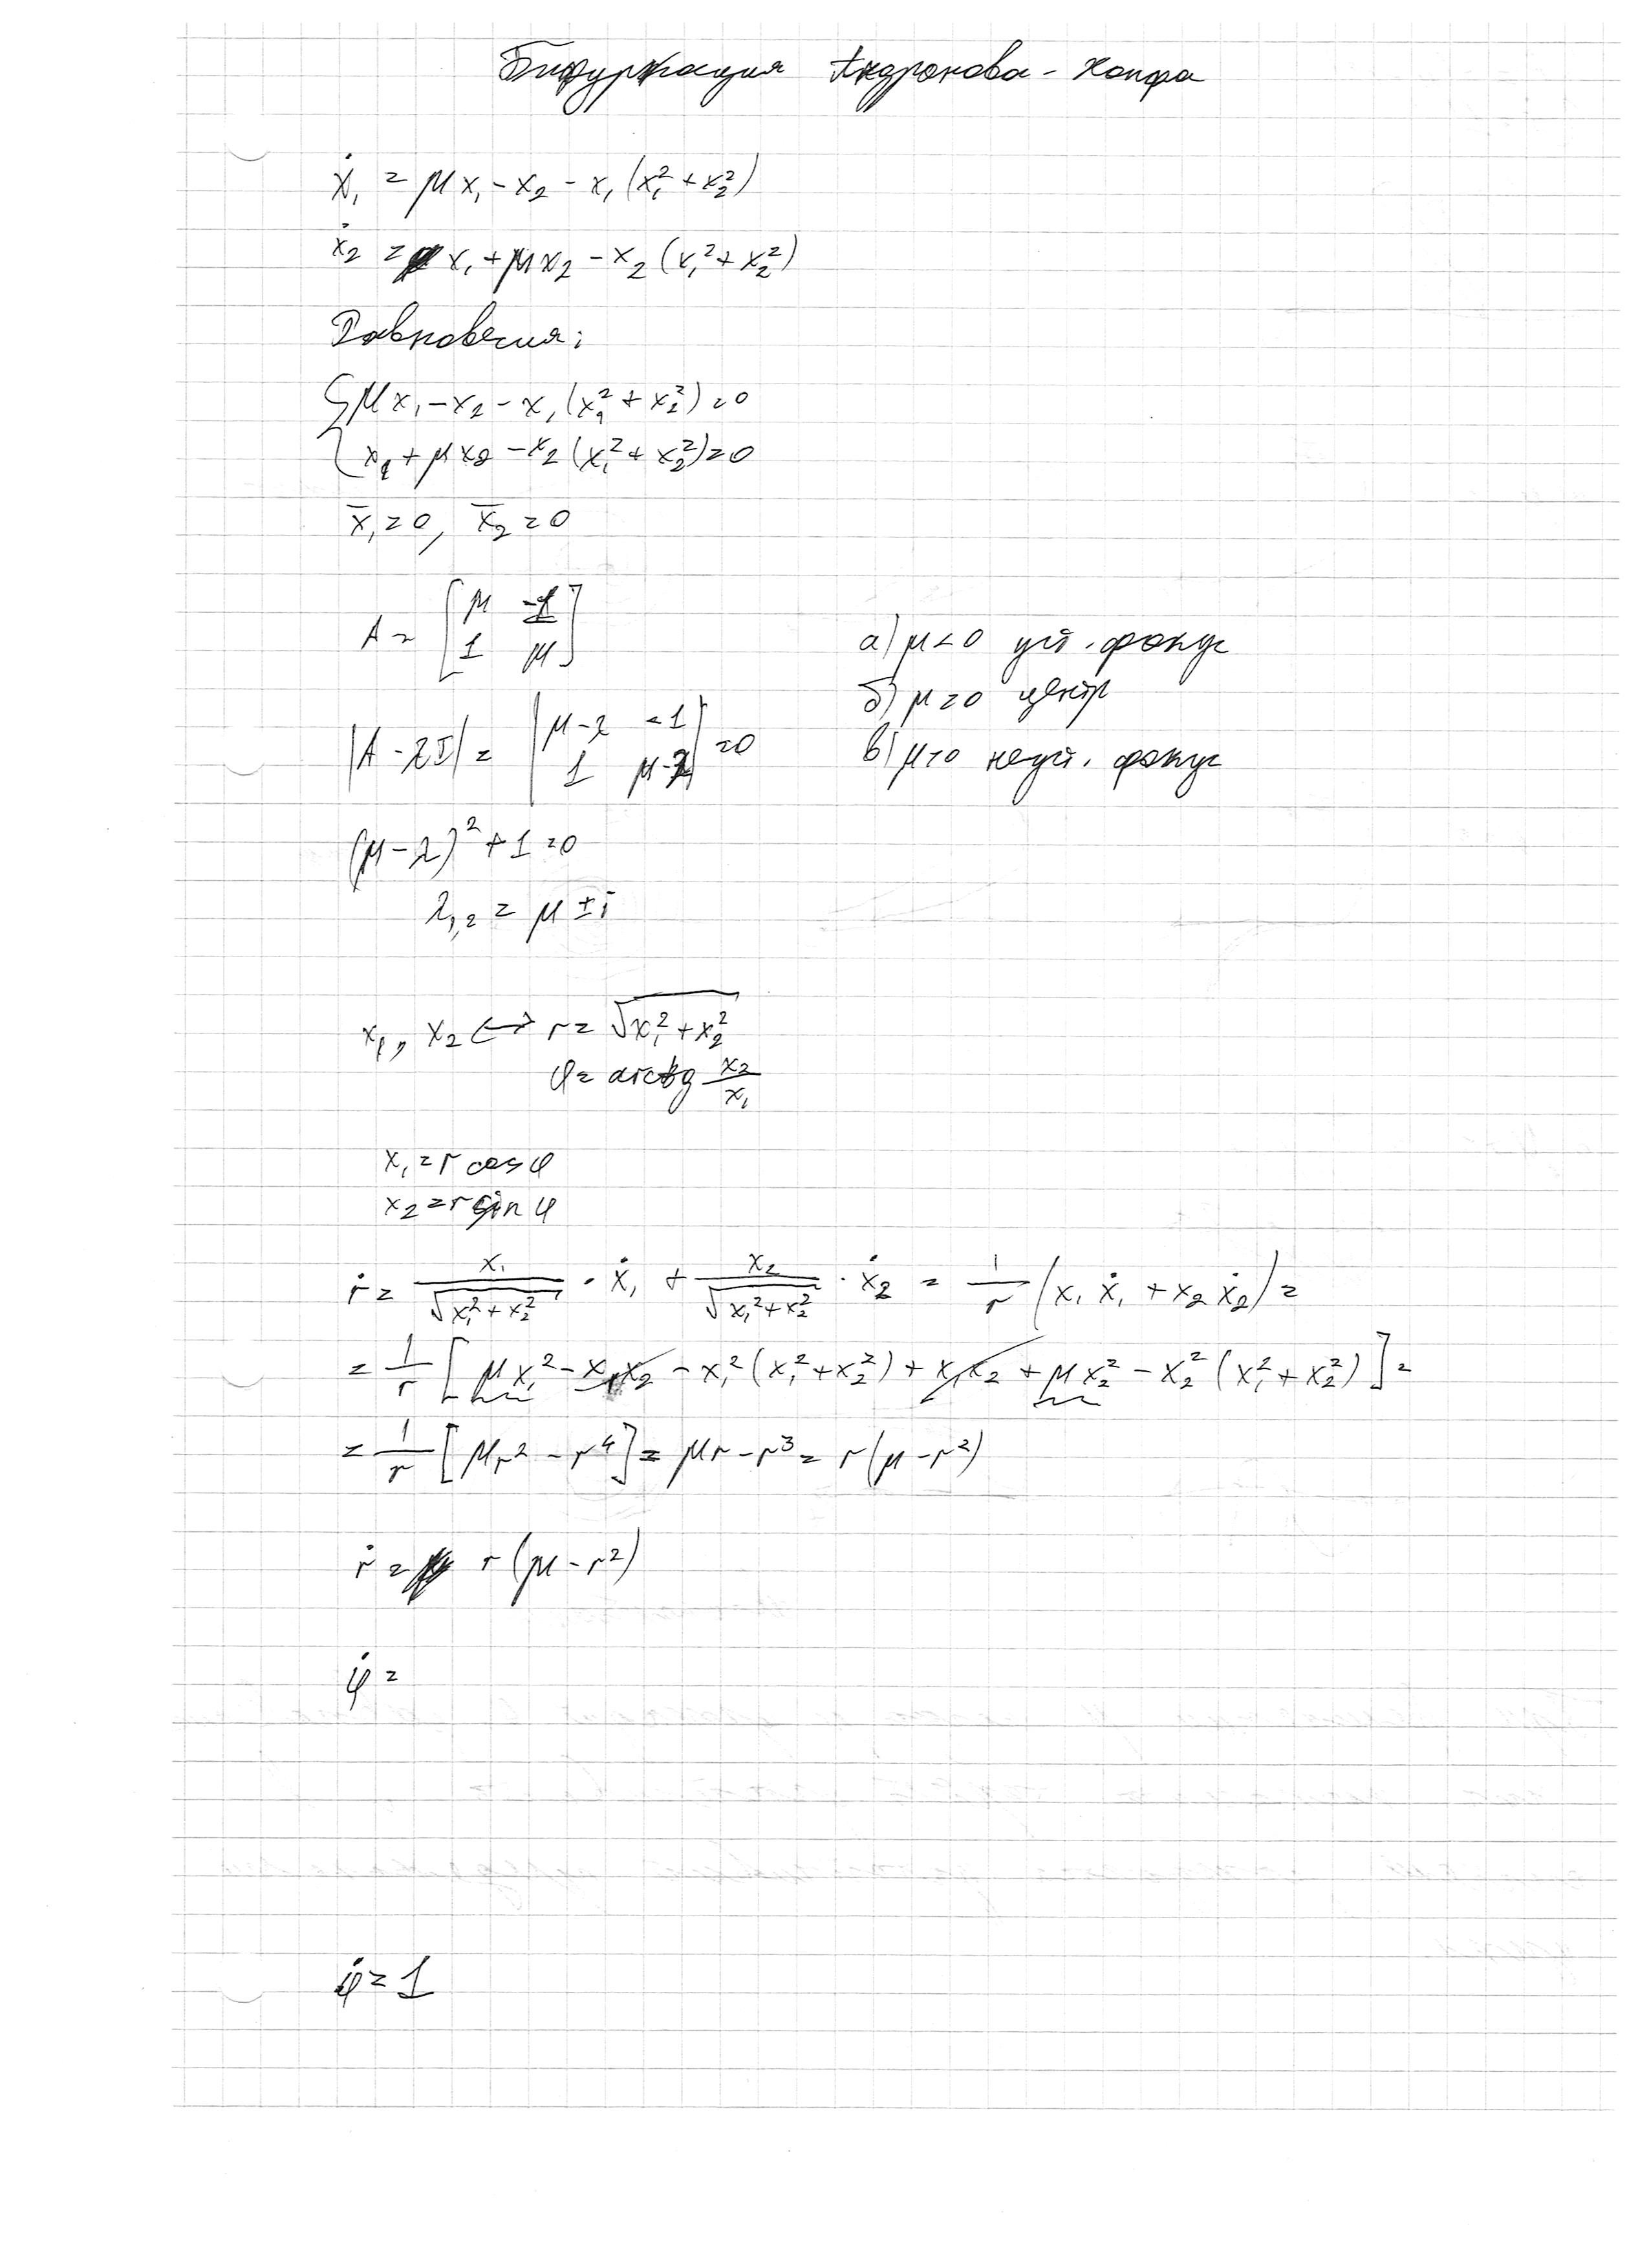 Бифуркация Андронова - Хопфа
ẋ₁ = μx₁ - x₂ - x₁(x₁² + x₂²)
ẋ₂ = x₁ + μx₂ - x₂(x₁² + x₂²)
Равновесия:
{ μx₁ - x₂ - x₁(x₁² + x₂²) = 0
x₁ + μx₂ - x₂(x₁² + x₂²) = 0
x̄₁ = 0, x̄₂ = 0
A = [μ -1
1 μ]
а) μ < 0 уст. фокус
б) μ = 0 центр
в) μ > 0 неуст. фокус
|A - λI| = |μ-λ -1
1 μ-λ| = 0
(μ - λ)² + 1 = 0
λ₁,₂ = μ ± i
x₁, x₂ ↔ r = √(x₁² + x₂²)
φ = arctg x₂/x₁
x₁ = r cos φ
x₂ = r sin φ
ṙ = x₁/√(x₁² + x₂²) · ẋ₁ + x₂/√(x₁² + x₂²) · ẋ₂ = 1/r (x₁ẋ₁ + x₂ẋ₂) =
= 1/r [μx₁² - x₁x₂ - x₁²(x₁² + x₂²) + x₁x₂ + μx₂² - x₂²(x₁² + x₂²)] =
= 1/r [μr² - r⁴] = μr - r³ = r(μ - r²)
ṙ = r(μ - r²)
φ̇ =
φ̇ = 1